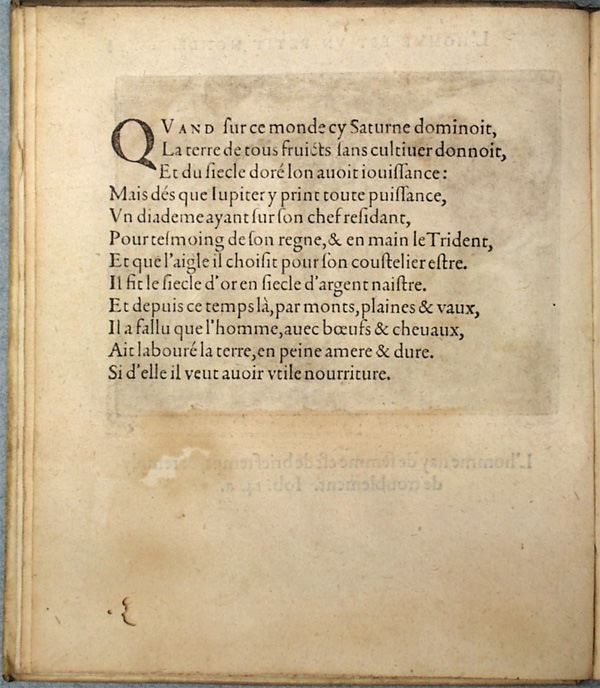 QVAND ſur ce monde cy Saturne dominoit,
La terre de tous fruicts ſans cultiuer donnoit,
Et du ſiecle doré lon auoit iouiſſance:
Mais dés que Iupiter y print toute puiſſance,
Vn diademe ayant ſur ſon chef reſidant,
Pour teſmoing de ſon regne, & en main le Trident,
Et que l'aigle il choiſit pour ſon couſtelier eſtre.
Il fit le ſiecle d'or en ſiecle d'argent naiſtre.
Et depuis ce temps là, par monts, plaines & vaux,
Il a fallu que l'homme, auec bœufs & cheuaux,
Ait labouré la terre, en peine amere & dure.
Si d'elle il veut auoir vtile nourriture.